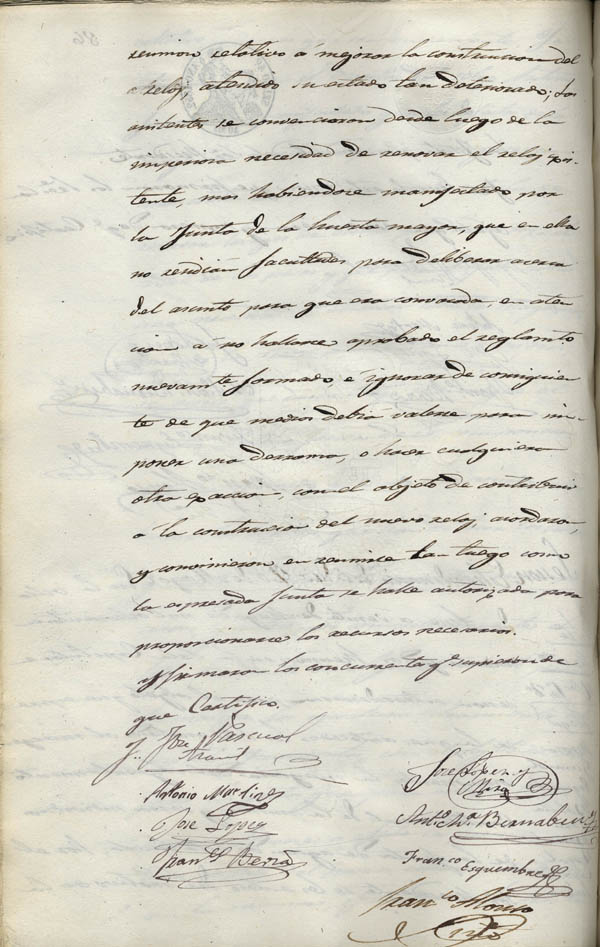 reunion relativo á mejorar la construccion del
reloj, atendido su estado tan deteriorado; los
asistentes se convencieron desde luego de la
imperiosa necesidad de renovar el reloj exis-
tente, mas habiendose manifestado por
la Junta de la huerta mayor, que en ella
no rendian facultades para deliberar acerca
del asunto para que era convocada, en aten-
cion á no hallarse aprobado el reglamto
nuevamte formado, é ignorar de consiguien
te de que medios debia valerse para im-
poner una derrama, o hacer cualquiera
otra exaccion, con el objeto de contribuir
a la construccion del nuevo reloj, acordaron,
y convinieron en reunirse tan luego como
la espresada Junta se halle autorizada para
proporcionarse los recursos necesarios.
Y firmaron los concurrentes qe supieron de
que Certifico.
José Pascual
José Lopez y
Antonio Martinez
Anto Ma Bernabeu
José Lopez
Franco Esquembre
Franco
Franco Alonso